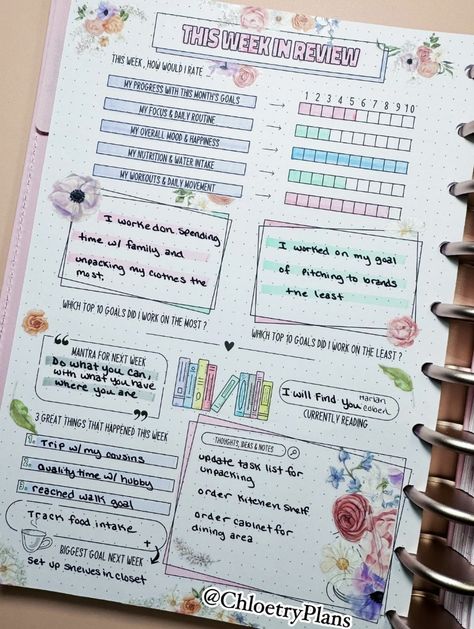 THIS WEEK IN REVIEW
THIS WEEK, HOW WOULD I RATE ...
1 2 3 4 5 6 7 8 9 10
MY PROGRESS WITH THIS MONTH'S GOALS
MY FOCUS & DAILY ROUTINE
MY OVERALL MOOD & HAPPINESS
MY NUTRITION & WATER INTAKE
MY WORKOUTS & DAILY MOVEMENT
I worked on spending
time w/ family and
unpacking my clothes the
most.
I worked on my goal
of pitching to brands
the least
WHICH TOP 10 GOALS DID I WORK ON THE MOST?
WHICH TOP 10 GOALS DID I WORK ON THE LEAST?
MANTRA FOR NEXT WEEK
Do what you can,
with what you have
where you are
I will Find you
Harlan
Coben
CURRENTLY READING
3 GREAT THINGS THAT HAPPENED THIS WEEK
1. Trip w/ my cousins
2. Quality time w/ hubby
3. reached walk goal
Track food intake
+
BIGGEST GOAL NEXT WEEK
set up shelves in closet
THOUGHTS, IDEAS & NOTES
update task list for
unpacking
order kitchen shelf
order cabinet for
dining area
@ChloetryPlans